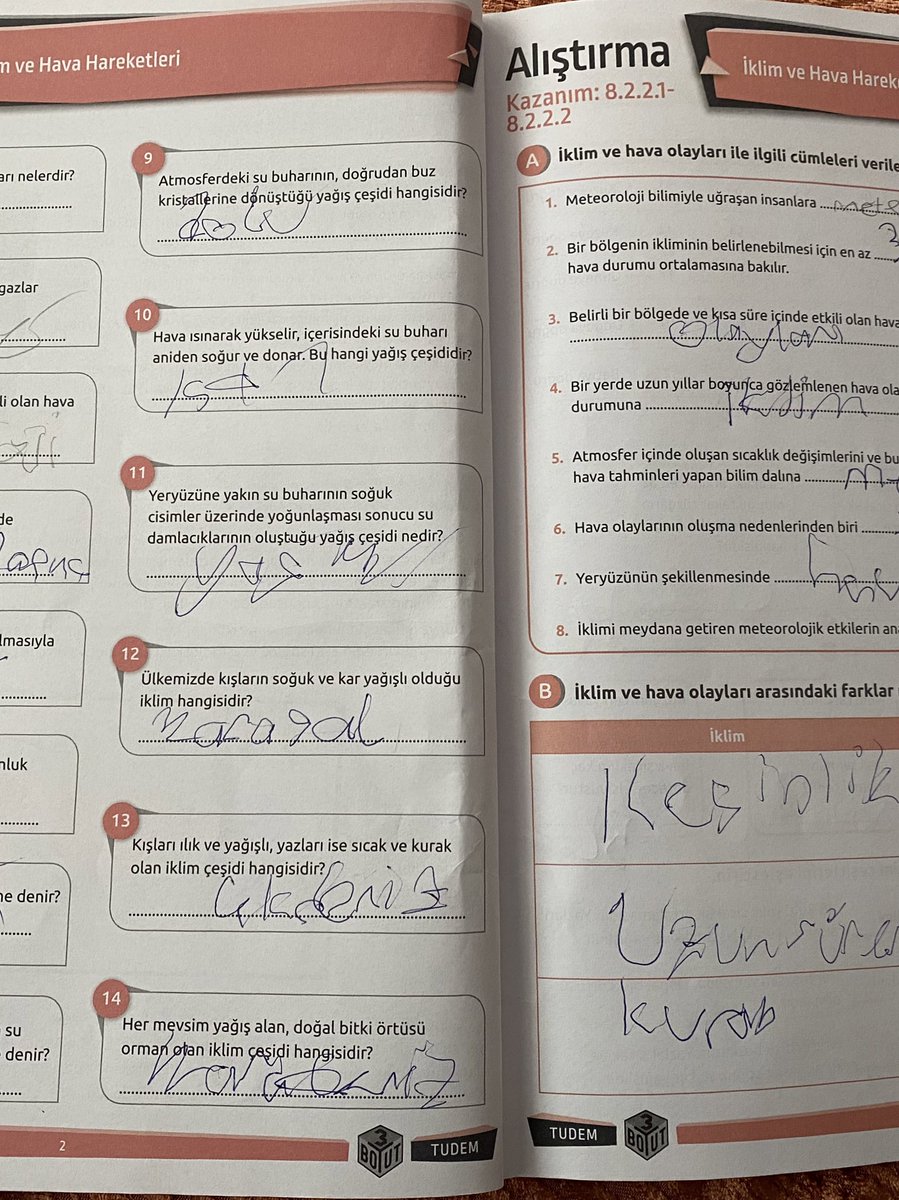 m ve Hava Hareketleri
arı nelerdir?
gazlar
li olan hava
de
lmasıyla
nluk
ne denir?
su
denir?
9
Atmosferdeki su buharının, doğrudan buz
kristallerine dönüştüğü yağış çeşidi hangisidir?
dolu
10
Hava ısınarak yükselir, içerisindeki su buharı
aniden soğur ve donar. Bu hangi yağış çeşididir?
11
Yeryüzüne yakın su buharının soğuk
cisimler üzerinde yoğunlaşması sonucu su
damlacıklarının oluştuğu yağış çeşidi nedir?
12
Ülkemizde kışların soğuk ve kar yağışlı olduğu
iklim hangisidir?
13
Kışları ılık ve yağışlı, yazları ise sıcak ve kurak
olan iklim çeşidi hangisidir?
akdeniz
14
Her mevsim yağış alan, doğal bitki örtüsü
orman olan iklim çeşidi hangisidir?
2
3
BOYUT
TUDEM
Alıştırma
Kazanım: 8.2.2.1-
8.2.2.2
İklim ve Hava Hareke
A İklim ve hava olayları ile ilgili cümleleri verile
1. Meteoroloji bilimiyle uğraşan insanlara
2. Bir bölgenin ikliminin belirlenebilmesi için en az
hava durumu ortalamasına bakılır.
3. Belirli bir bölgede ve kısa süre içinde etkili olan hava
olayları
4. Bir yerde uzun yıllar boyunca gözlemlenen hava ola
durumuna iklim
5. Atmosfer içinde oluşan sıcaklık değişimlerini ve bu
hava tahminleri yapan bilim dalına
6. Hava olaylarının oluşma nedenlerinden biri
7. Yeryüzünün şekillenmesinde
8. İklimi meydana getiren meteorolojik etkilerin an
B İklim ve hava olayları arasındaki farklar
İklim
Kesinlik
Uzun süre
kurak
TUDEM
3
BOYUT